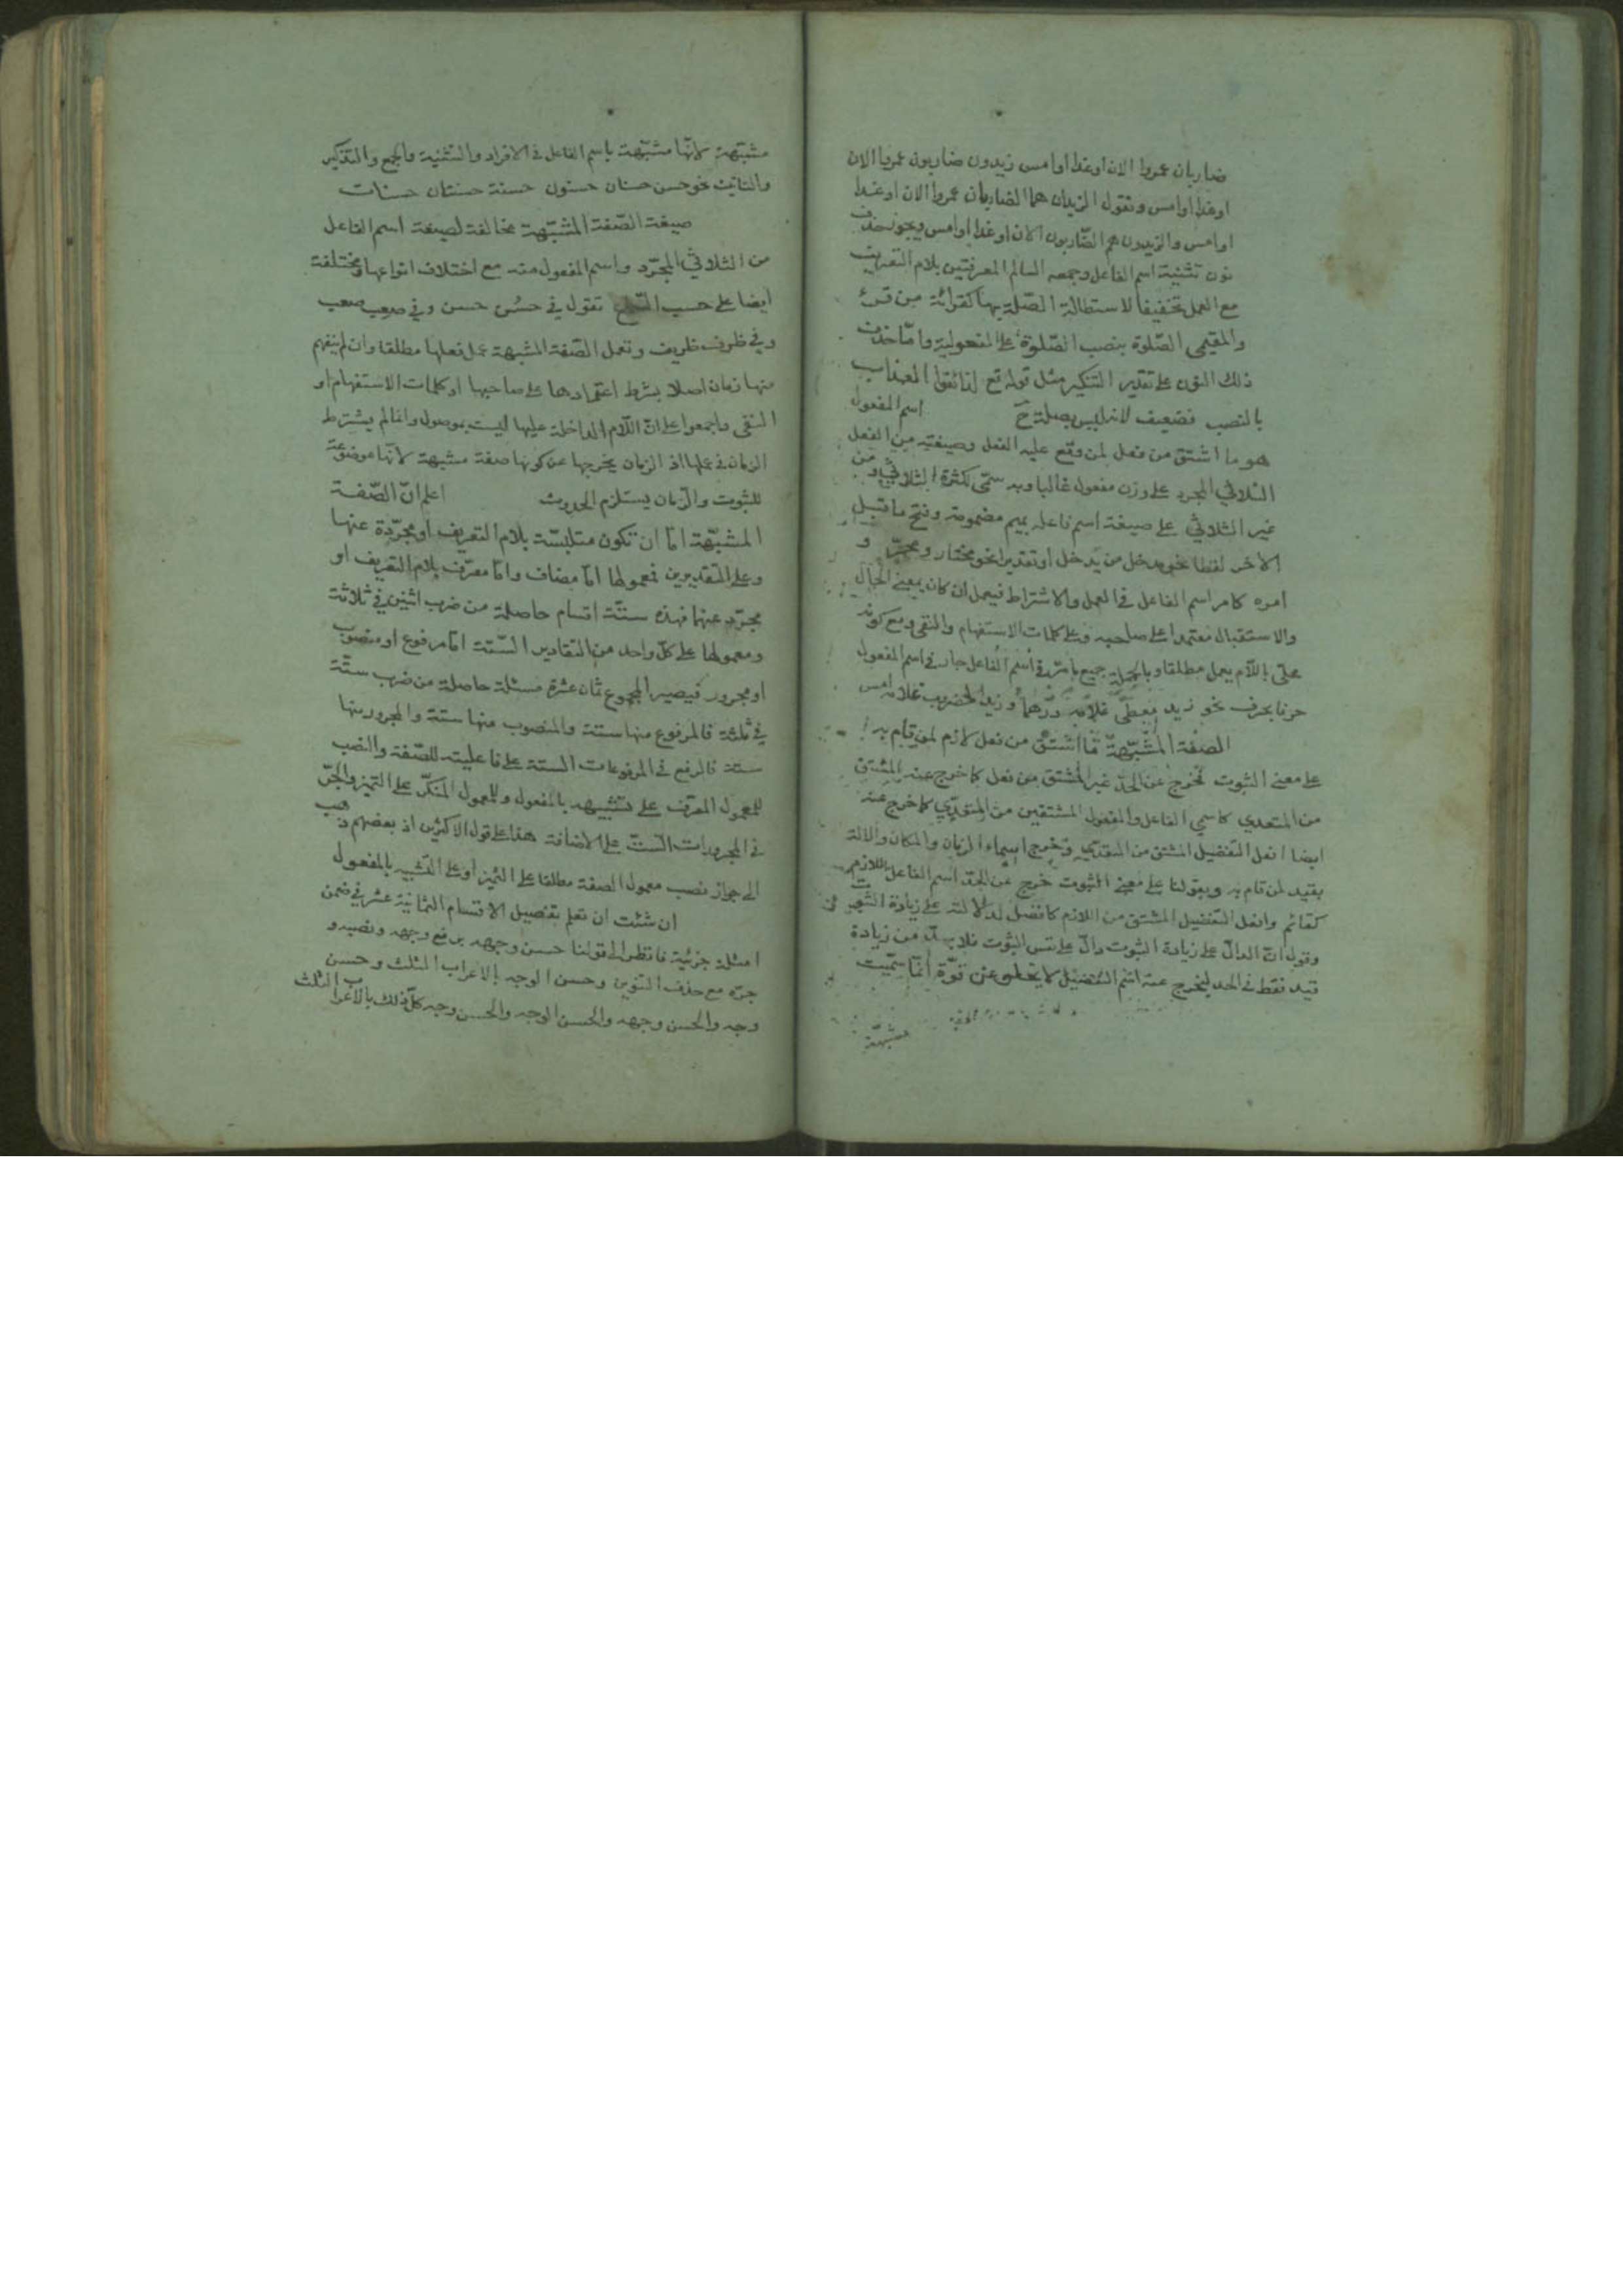 ضاربان عمروا الان او غدا او امس زيدون ضاربون عمروا الان
او غدا او امس وتقول الزيدان هما الضاربان عمروا الان او غدا
او امس والزيدون هم الضّاربون الان او غدا او امس ويجوز حذف
نون تثنية اسم الفاعل وجمعه السالم المعرفتين بلام التعريف
مع العمل تخفيفا لاستطالة الصّلة بها كقرائة من قرئ
والمقيمى الصّلوة بنصب الصّلوة على المفعولية وامّا حذف
ذلك النون على تقدير التنكير مثل قوله تع لذائقوا العذاب
بالنصب فضعيف لانه ليس بصلة ح اسم المفعول
هو ما اشتق من فعل لمن وقع عليه الفعل وصيغته من الفعل
الثلاثي المجرد على وزن مفعول غالبا وبه سمّى لكثرة الثلاثي ومن
غير الثلاثي على صيغة اسم فاعله بميم مضمومة وفتح ما قبل
الاخر لفظا نحو مدخل من يدخل او تقديرا نحو مختار و
امره كامر اسم الفاعل في العمل والاشتراط فيعمل ان كان بمعنى الحال
والاستقبال معتمدا على صاحبه وعلى كلمات الاستفهام والنفى ومع كونه
محلّى باللّام يعمل مطلقا وبالجملة جميع ما مرّ في اسم الفاعل جار في اسم المفعول
حرفا بحرف نحو زيد معطى غلامه درهما وزيد المضروب غلامه امس
الصفة المشبّهة ما اشتق من فعل لازم لمن قام به
على معنى الثبوت فخرج عن الحدّ غير المشتق من فعل كما خرج عنه المشتق
من المتعدي كاسمي الفاعل والمفعول المشتقين من المتعدّي كما خرج عنه
ايضا افعل التفضيل المشتق من المتعدّي وخرج اسماء الزمان والمكان والالة
بقيد لمن قام به وبقولنا على معنى الثبوت خرج عن الحدّ اسم الفاعل اللازم
كقائم وافعل التفضيل المشتق من اللازم كافضل لدلالته على زيادة الثبوت
وقوله انّ الدالّ على زيادة الثبوت دالّ على نفس الثبوت فلا بدّ من زيادة
قيد فقط في الحد ليخرج عنه اسم التفضيل لا يخلو عن قوّة انّما سمّيت
مشبّهة
مشبّهة لانّها مشبّهة باسم الفاعل في الافراد والتثنية والجمع والتذكير
والتانيث نحو حسن حسنان حسنون حسنة حسنتان حسنات
صيغة الصّفة المشبّهة مخالفة لصيغة اسم الفاعل
من الثلاثيّ المجرّد واسم المفعول منه مع اختلاف انواعها ومختلفة
ايضا على حسب تقول في حسُن حسن وفي صعب صعب
وفي ظرف ظريف وتعمل الصّفة المشبهة عمل فعلها مطلقا وان لم يفهم
منها زمان اصلا بشرط اعتمادها على صاحبها او كلمات الاستفهام او
النفى واجمعوا على انّ اللّام الداخلة عليها ليست بموصول وانما لم يشترط
الزمان في عملها اذ الزمان يخرجها عن كونها صفة مشبهة لانّها موضوعة
للثبوت والزّمان يستلزم الحدوث اعلم انّ الصّفة
المشبّهة امّا ان تكون متلبسّة بلام التعريف او مجرّدة عنها
وعلى التقديرين فمعمولها امّا مضاف وامّا معرّف بلام التعريف او
مجرّد عنهما فهذه ستّة اقسام حاصلة من ضرب اثنين في ثلاثة
ومعمولها على كلّ واحد من التقادير السّتة امّا مرفوع او منصوب
او مجرور فيصير المجموع ثمان عشرة مسئلة حاصلة من ضرب ستّة
في ثلثة فالمرفوع منها ستة والمنصوب منها ستة والمجرور منها
ستة فالرفع في المرفوعات الستة على فاعليته للصّفة والنصب
للمعمول المعرّف على تشبيهه بالمفعول وللمعمول المنكّر على التميز والجرّ
في المجرورات الستّ على الاضافة هذا على قول الاكثرين اذ بعضهم ذهب
الى جواز نصب معمول الصفة مطلقا على التميز او على التشبيه بالمفعول
ان شئت ان تعلم تفصيل الاقسام الثمانية عشر في ضمن
امثلة جزئية فانظر الى قولنا حسن وجهه برفع وجهه ونصبه و
جرّه مع حذف التنوين وحسن الوجه بالاعراب الثلث وحسن
وجه والحسن وجهه والحسن الوجه والحسن وجه كلّ ذلك بالاعراب الثلث